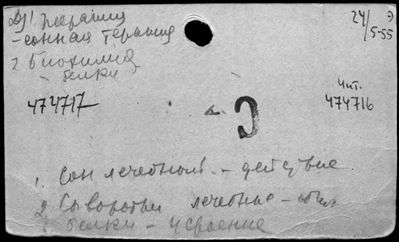 терапия
- сонная терапия
2 Биохимия
- белки
24/5-55
474717
Чит.
474716
С
1. Сон лечебный. - действие.
2. Сыворотки лечебные -
белки - усвоение